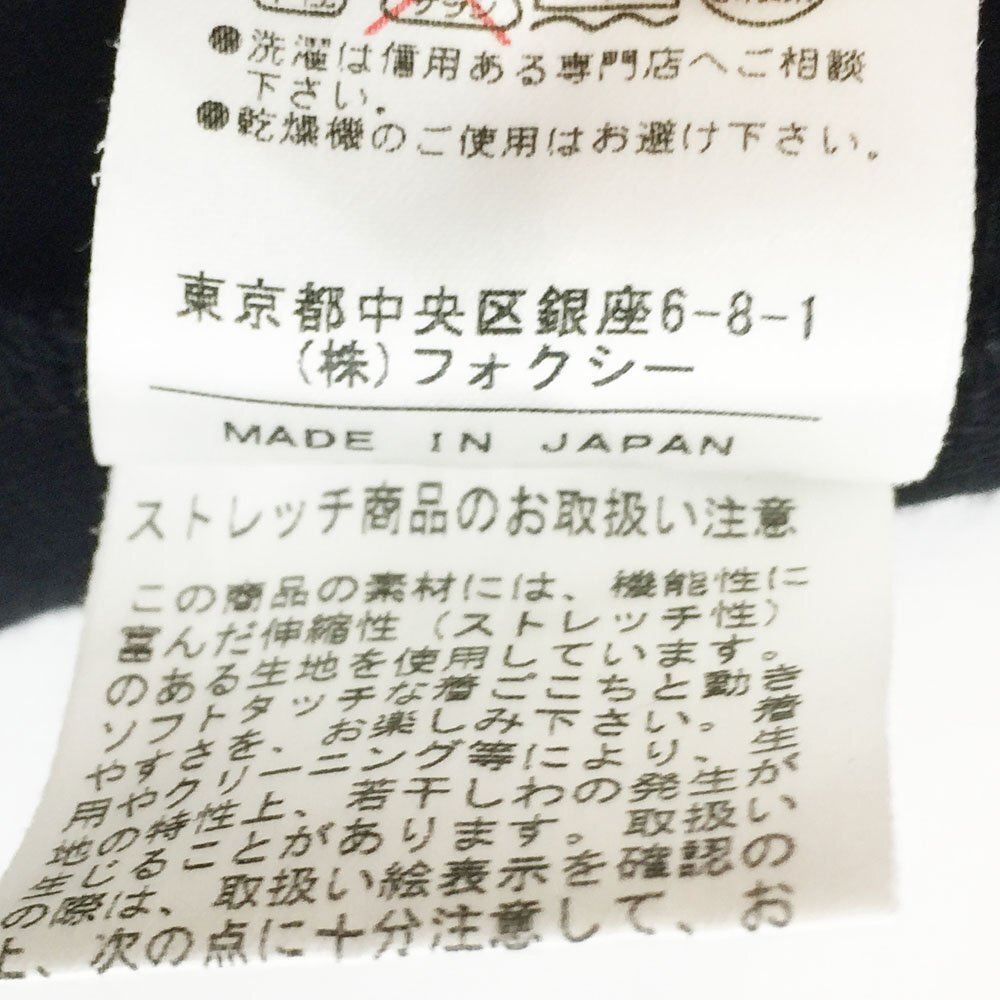 ●洗濯は信用ある専門店へご相談
下さい。
●乾燥機のご使用はお避け下さい。
東京都中央区銀座6-8-1
(株)フォクシー
MADE IN JAPAN
ストレッチ商品のお取扱い注意
この商品の素材には、機能性に
富んだ伸縮性(ストレッチ性)
のある生地を使用しています。
ソフトタッチな着ごこちと動き
やすさを、お楽しみ下さい。着
用やクリーニング等により、生
地の特性上、若干しわの発生が
生じることがあります。取扱い
の際は、取扱い絵表示を確認の
上、次の点に十分注意して、お